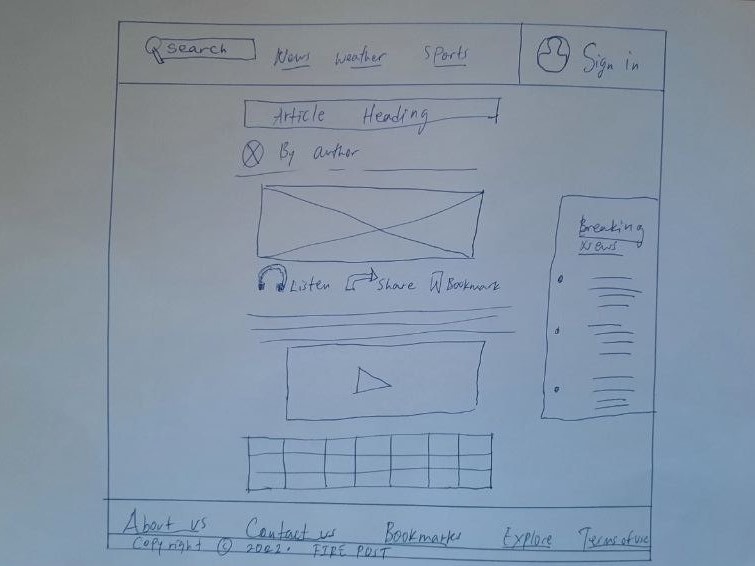 Search News Weather Sports Sign in
Article Heading
By author
Breaking
News
Listen Share Bookmark
About us Contact us Bookmarks Explore Terms of use
Copyright © 2022. FIRE POST